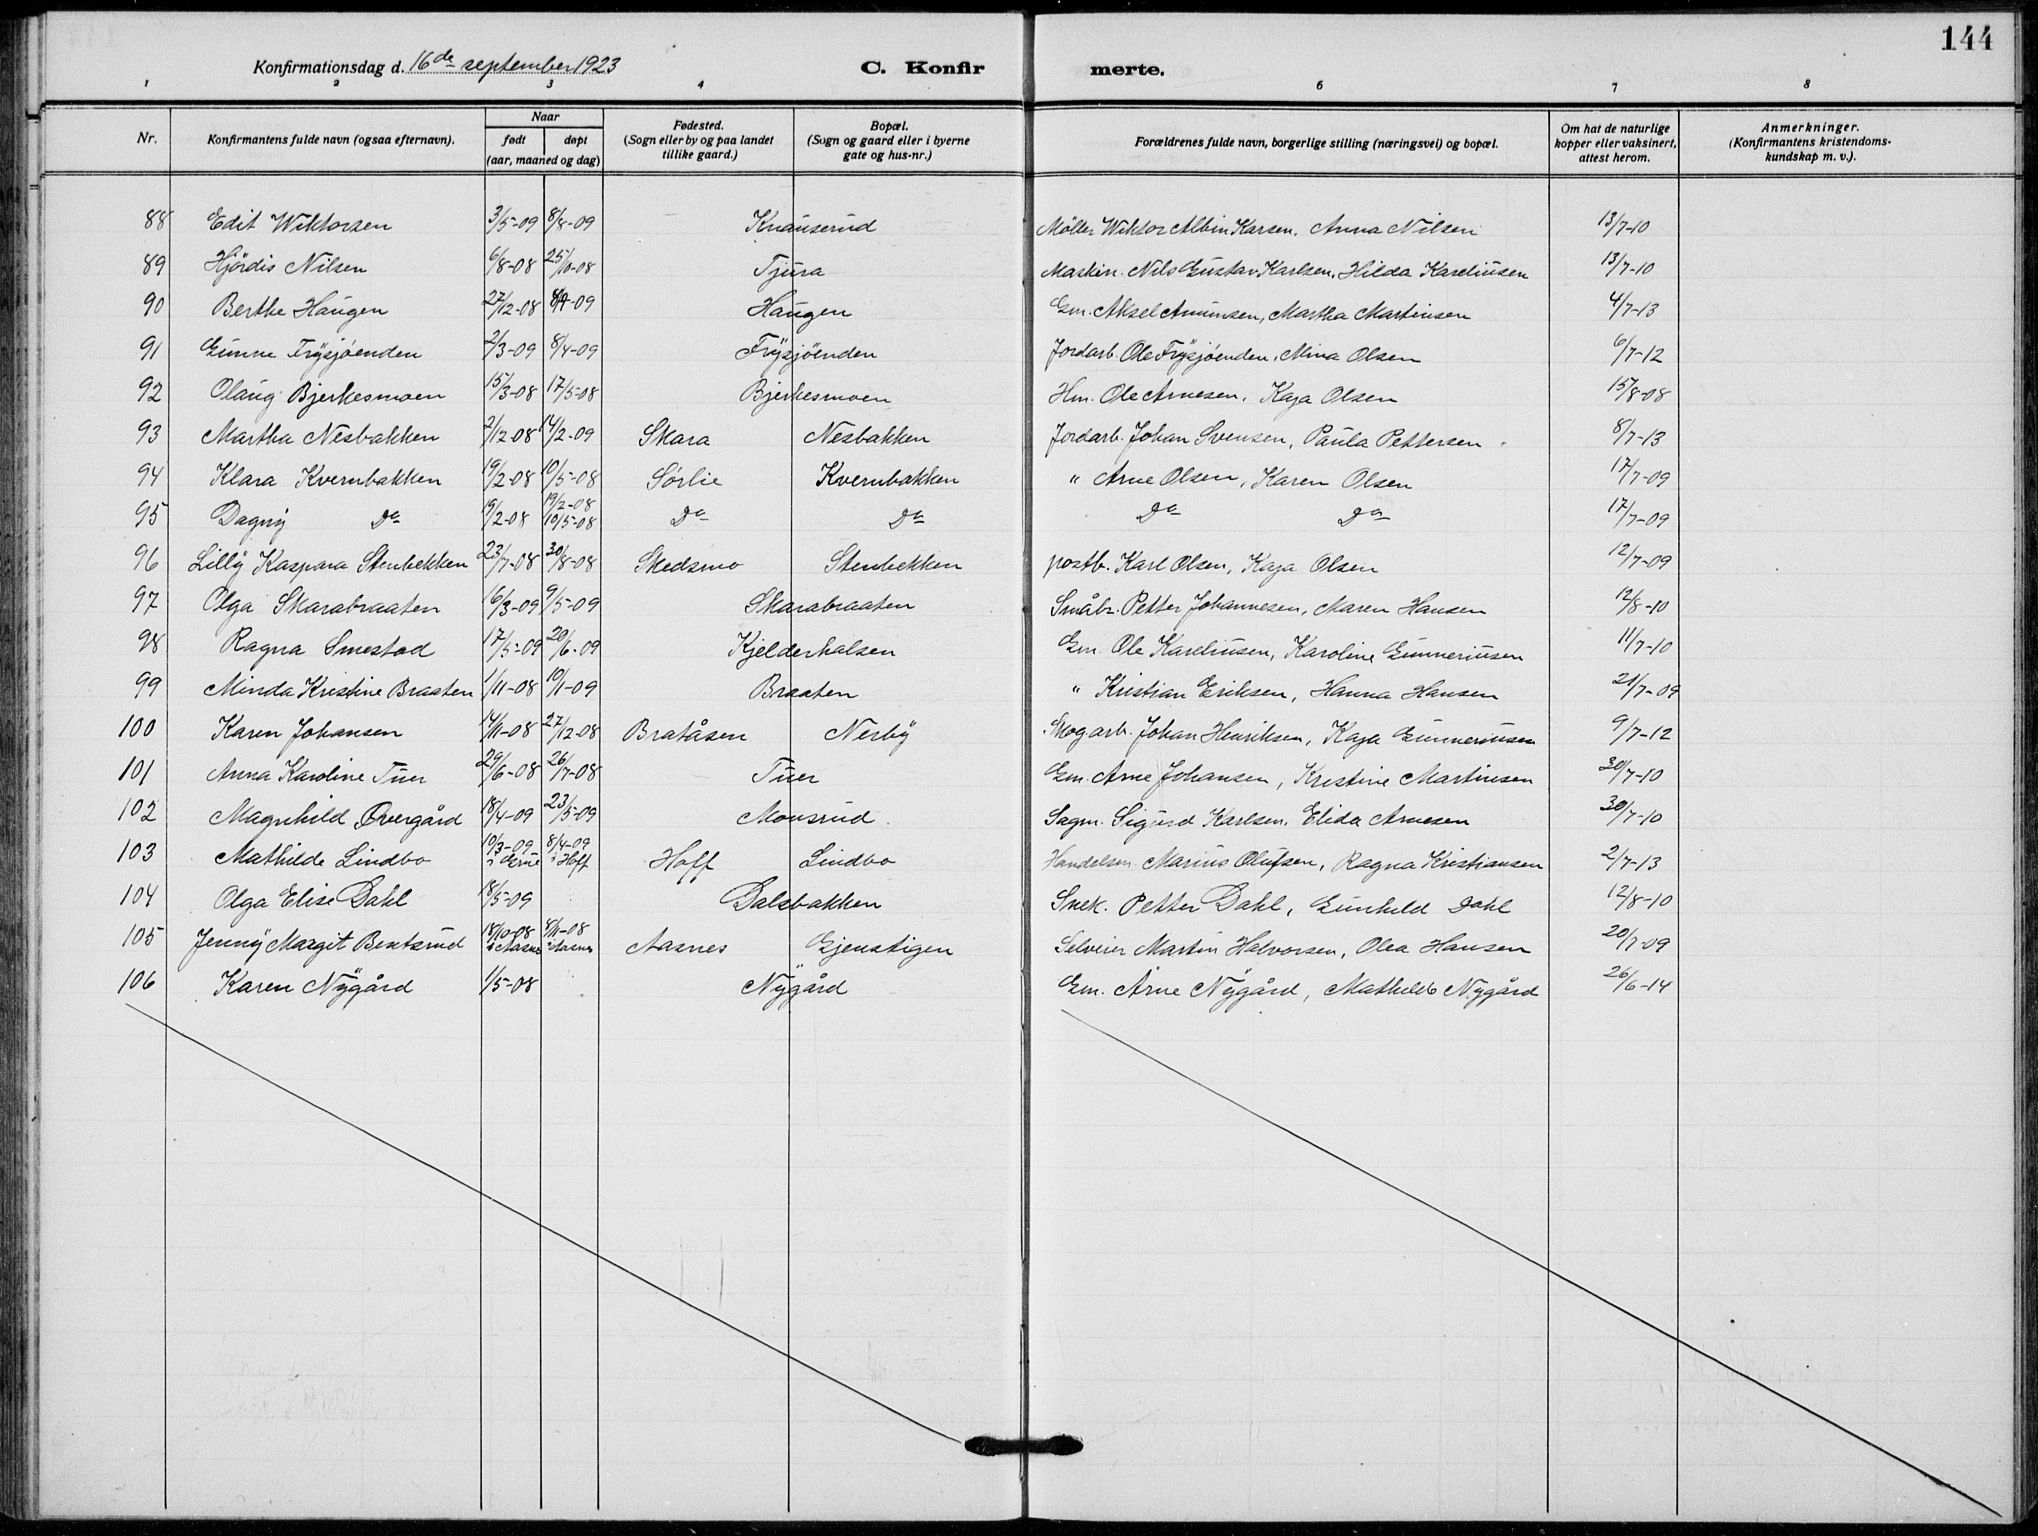 144
Konfirmationsdag d. 16de september 1923 C. Konfir merte.
1 2 3 4 6 7 8
Nr. Konfirmantens fulde navn (ogsaa efternavn). Naar født døpt (aar, maaned og dag) Fødested. (Sogn eller by og paa landet tillike gaard.) Bopæl. (Sogn og gaard eller i byerne gate og hus-nr.) Forældrenes fulde navn, borgerlige stilling (næringsvei) og bopæl. Om hat de naturlige kopper eller vaksinert, attest herom. Anmerkninger. (Konfirmantens kristendoms-kundskap m. v.).
88 Edit Wiktorsen 3/5-09 8/8-09 Knauserud Møller Wiktor Albin Karsen. Anna Nilsen 13/7-10
89 Hjördis Nilsen 6/8-08 25/10-08 Tjura Maskin. Nils Gustav Karlsen, Hilda Kareliusen 13/7-10
90 Berthe Haugen 27/12-08 -09 Haugen Gm. Aksel Amunsen, Martha Martinsen 4/7-13
91 Gunne Frysjøenden 2/3-09 8/4-09 Frysjøenden Jordarb. Ole Frysjøenden, Mina Olsen 6/7-12
92 Olaug Bjerkesmoen 15/3-08 17/5-08 Bjerkesmoen Hm. Ole Arnesen, Kaja Olsen 15/8-08
93 Martha Nesbakken 2/12-08 14/2-09 Skara Nesbakken Jordarb. Johan Svensen, Paula Pettersen 8/7-13
94 Klara Kvernbakken 19/2-08 10/5-08 Sørlie Kvernbakken " Arne Olsen, Karen Olsen 17/7-09
95 Dagny Do 19/2-08 19/2-08 10/5-08 Do Do Do Do 17/7-09
96 Lilly Kaspara Stenbekken 23/7-08 30/8-08 Skedsmo Stenbekken postb. Karl Olsen, Kaja Olsen 12/7-09
97 Olga Skarabraaten 16/3-09 9/5-09 Skarabraaten Småbr. Petter Johannesen, Maren Hansen 12/8-10
98 Ragna Smestad 17/5-09 20/6-09 Kjelderhalsen Gm. Ole Kareliusen, Karoline Gunneriusen 11/7-10
99 Minda Kristine Braaten 1/11-08 10/1-09 Braaten " Kristian Eriksen, Hanna Hansen 21/7-09
100 Karen Johansen 14/11-08 27/12-08 Bratåsen Nerby Skogarb. Johan Henriksen, Kaja Gunneriusen 9/7-12
101 Anna Karoline Tuer 29/6-08 26/7-08 Tuer Gm. Arne Johansen, Kristine Martinsen 30/7-10
102 Magnhild Øvergård 18/4-09 23/5-09 Monsrud Sagm. Sigurd Karlsen, Elida Arnesen 30/7-10
103 Mathilde Lindbo 10/3-09 i Grue 8/4-09 i Hoff Hoff Lindbo Handelsm. Marius Olufsen, Ragna Kristiansen 2/7-13
104 Olga Elise Dahl 18/5-09 Dalsbakken Snek. Petter Dahl, Gunhild Dahl 12/8-10
105 Jenny Margit Bentsrud 18/10-08 i Aasnes 8/11-08 i Aasnes Aasnes Gjenstigen Selveier Martin Halvorsen, Olea Hansen 20/7-09
106 Karen Nygård 1/5-08 Nygård Gm. Arne Nygård, Mathilde Nygård 26/6-14